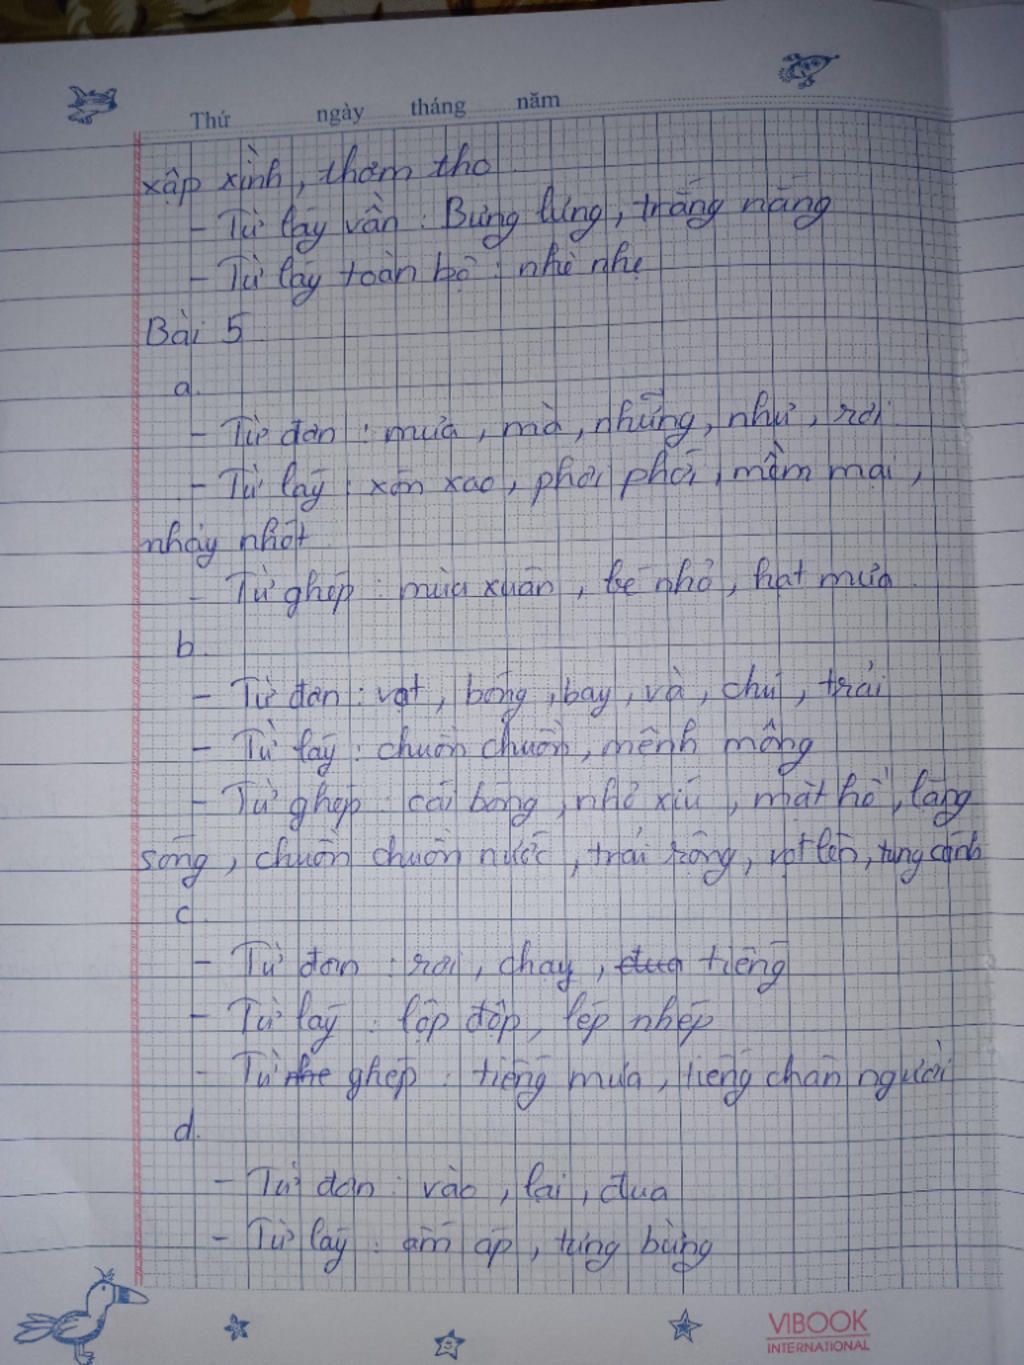 Thứ ngày tháng năm
xập xình, thơm tho
- Từ láy vần : Bưng lưng, trắng nắng
- Từ láy toàn bộ : nhè nhẹ
Bài 5
a.
- Từ đơn : mưa, mà, những, như, rơi
- Từ láy : xôn xao, phơi phới, mềm mại,
nhảy nhót
- Từ ghép : mùa xuân, bé nhỏ, hạt mưa
b.
- Từ đơn : vọt, bóng, bay, và, chú, trải
- Từ láy : chuồn chuồn, mênh mông
- Từ ghép : cái bóng, nhỏ xíu, mặt hồ, lặng
sóng, chuồn chuồn nước, trải rộng, vọt lên, tung cánh
c.
- Từ đơn : rơi, chạy, đua tiếng
- Từ láy : lộp độp, lép nhép
- Từ nhe ghép : tiếng mưa, tiếng chân người
d.
- Từ đơn : vào, lại, đua
- Từ láy : ấm áp, tưng bừng
VIBOOK
INTERNATIONAL